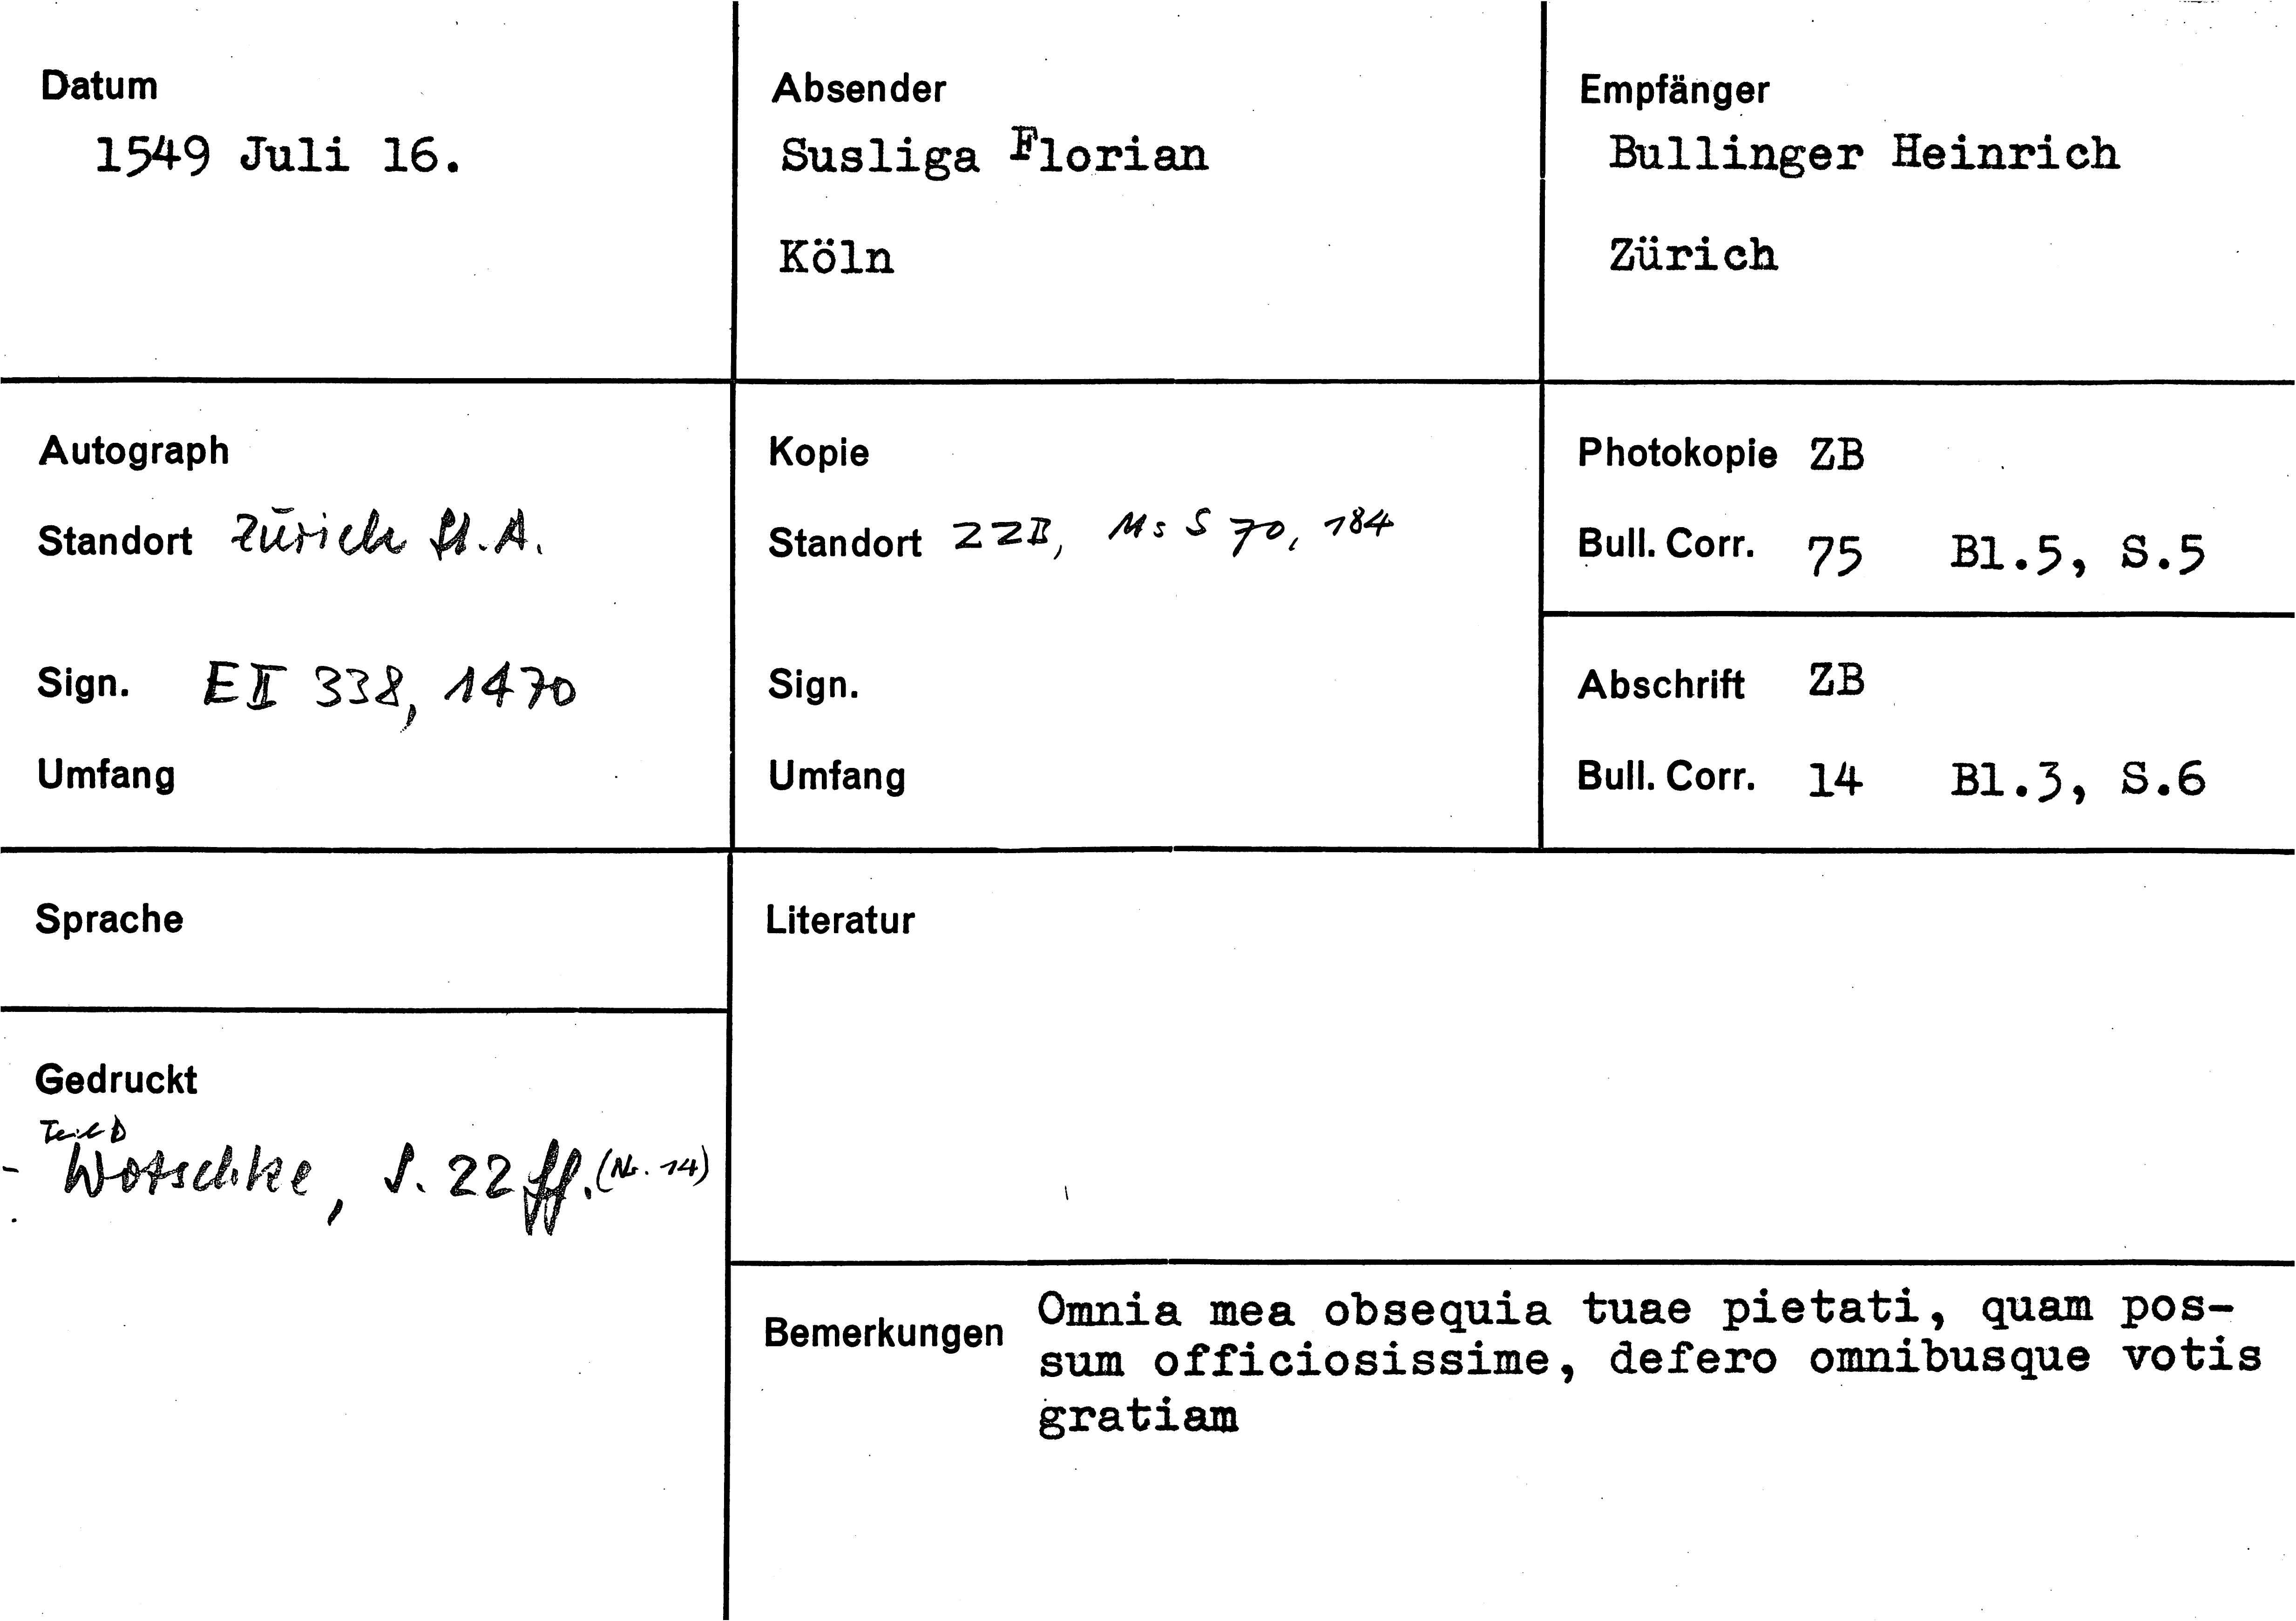 Datum
1549 Juli 16.
Absender
Susliga Florian
Köln
Empfänger
Bullinger Heinrich
Zürich
Autograph
Standort Zürich St.A.
Sign. E II 338, 1470
Umfang
Kopie
Standort ZZB, Ms S 70, 184
Sign.
Umfang
Photokopie ZB
Bull. Corr. 75 Bl.5, S.5
Abschrift ZB
Bull. Corr. 14 Bl.3, S.6
Sprache
Gedruckt
- Wotschke, S. 22 ff. (Nr. 14)
Literatur
Bemerkungen Omnia mea obsequia tuae pietati, quam pos-
sum officiosissime, defero omnibusque votis
gratiam